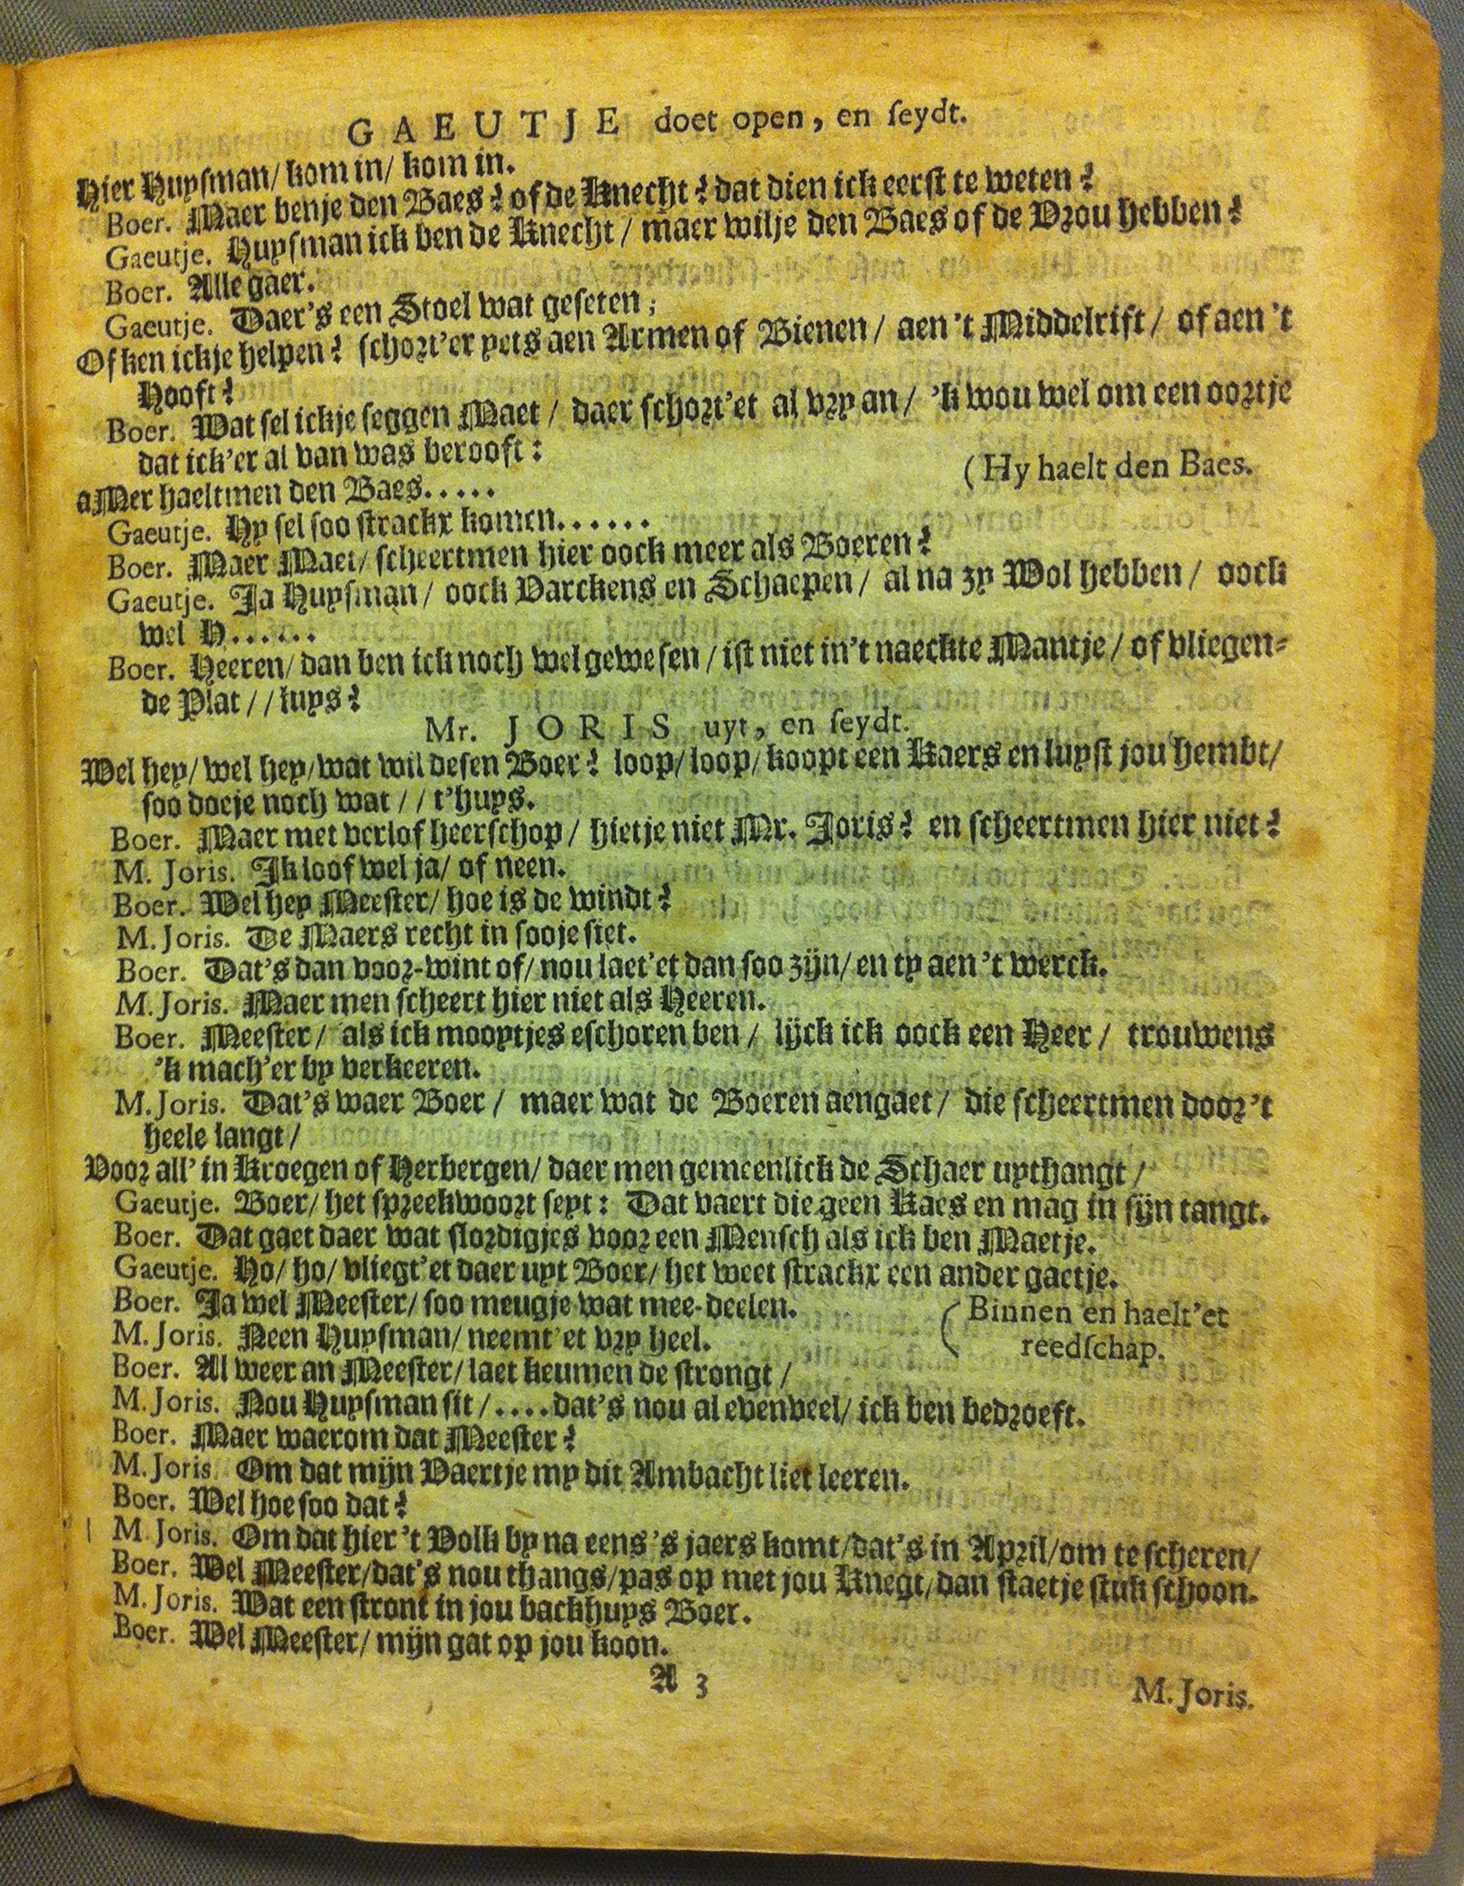 GAEUTJE doet open, en ſeydt.
Hier Huyſman/ kom in/ kom in.
Boer. Maer benje den Baes? of de Knecht? dat dien ick eerst te weten?
Gaeutje. Huyſman ick ben de Knecht / maer wilje den Baes of de Vrou hebben?
Boer. Alle gaer.
Gaeutje. Daer's een Stoel wat geſeten;
Of ken ickje helpen? ſchort'er yets aen Armen of Bienen / aen 't Middelrift / of aen 't
Hooft?
Boer. Wat ſel ickje ſeggen Maet / daer ſchort'et al vry an / 'k wou wel om een oortje
dat ick'er al van was berooft:
aMer haeltmen den Baes..... (Hy haelt den Baes.
Gaeutje. Hy ſel ſoo ſtrackx komen......
Boer. Maer Maet/ ſcheertmen hier oock meer als Boeren?
Gaeutje. Ja Huyſman / oock Varckens en Schaepen / al na zy Wol hebben / oock
wel H......
Boer. Heeren/ dan ben ick noch wel geweſen / iſt niet in't naeckte Mantje / of vliegen-
de Plat / / luys?
Mr. JORIS uyt, en ſeydt.
Wel hey/ wel hey/ wat wil deſen Boer? loop/ loop/ koopt een Kaers en luyſt jou hembt/
ſoo doeje noch wat / / t'huys.
Boer. Maer met verlof heerſchop / hietje niet Mr. Joris? en ſcheertmen hier niet?
M. Joris. Ik loof wel ja/ of neen.
Boer. Wel hey Meeſter/ hoe is de windt?
M. Joris. De Maers recht in ſooje ſiet.
Boer. Dat's dan voor-wint of/ nou laet'et dan ſoo zijn/ en ty aen 't werck.
M. Joris. Maer men ſcheert hier niet als Heeren.
Boer. Meeſter / als ick mooytjes eſchoren ben / lijck ick oock een Heer / trouwens
'k mach'er by verkeeren.
M. Joris. Dat's waer Boer / maer wat de Boeren aengaet / die ſcheertmen door 't
heele langt /
Voor all' in Kroegen of Herbergen/ daer men gemeenlick de Schaer uythangt /
Gaeutje. Boer/ het ſpreekwoort ſeyt: Dat vaert die geen Kaes en mag in ſijn tangt.
Boer. Dat gaet daer wat ſlordigjes voor een Menſch als ick ben Maetje.
Gaeutje. Ho/ ho/ vliegt'et daer uyt Boer/ het weet ſtrackx een ander gaetje.
Boer. Ja wel Meeſter/ ſoo meugje wat mee-deelen. (Binnen en haelt'et
M. Joris. Neen Huyſman/ neemt'et vry heel. reedſchap.
Boer. Al weer an Meeſter/ laet keumen de ſtrongt /
M. Joris. Nou Huyſman ſit /....dat's nou al evenveel/ ick ben bedroeft.
Boer. Maer waerom dat Meeſter?
M. Joris Om dat mijn Vaertje my dit Ambacht liet leeren.
Boer. Wel hoe ſoo dat?
M Joris. Om dat hier 't Volk by na eens 's jaers komt/ dat's in April/ om te ſcheren/
Boer. Wel Meeſter/ dat's nou thangs/ pas op met jou Knegt/ dan ſtaetje ſtuk ſchoon.
M. Joris. Wat een ſtront in jou backhuys Boer.
Boer. Wel Meeſter/ mijn gat op jou koon.
A 3 M. Joris.